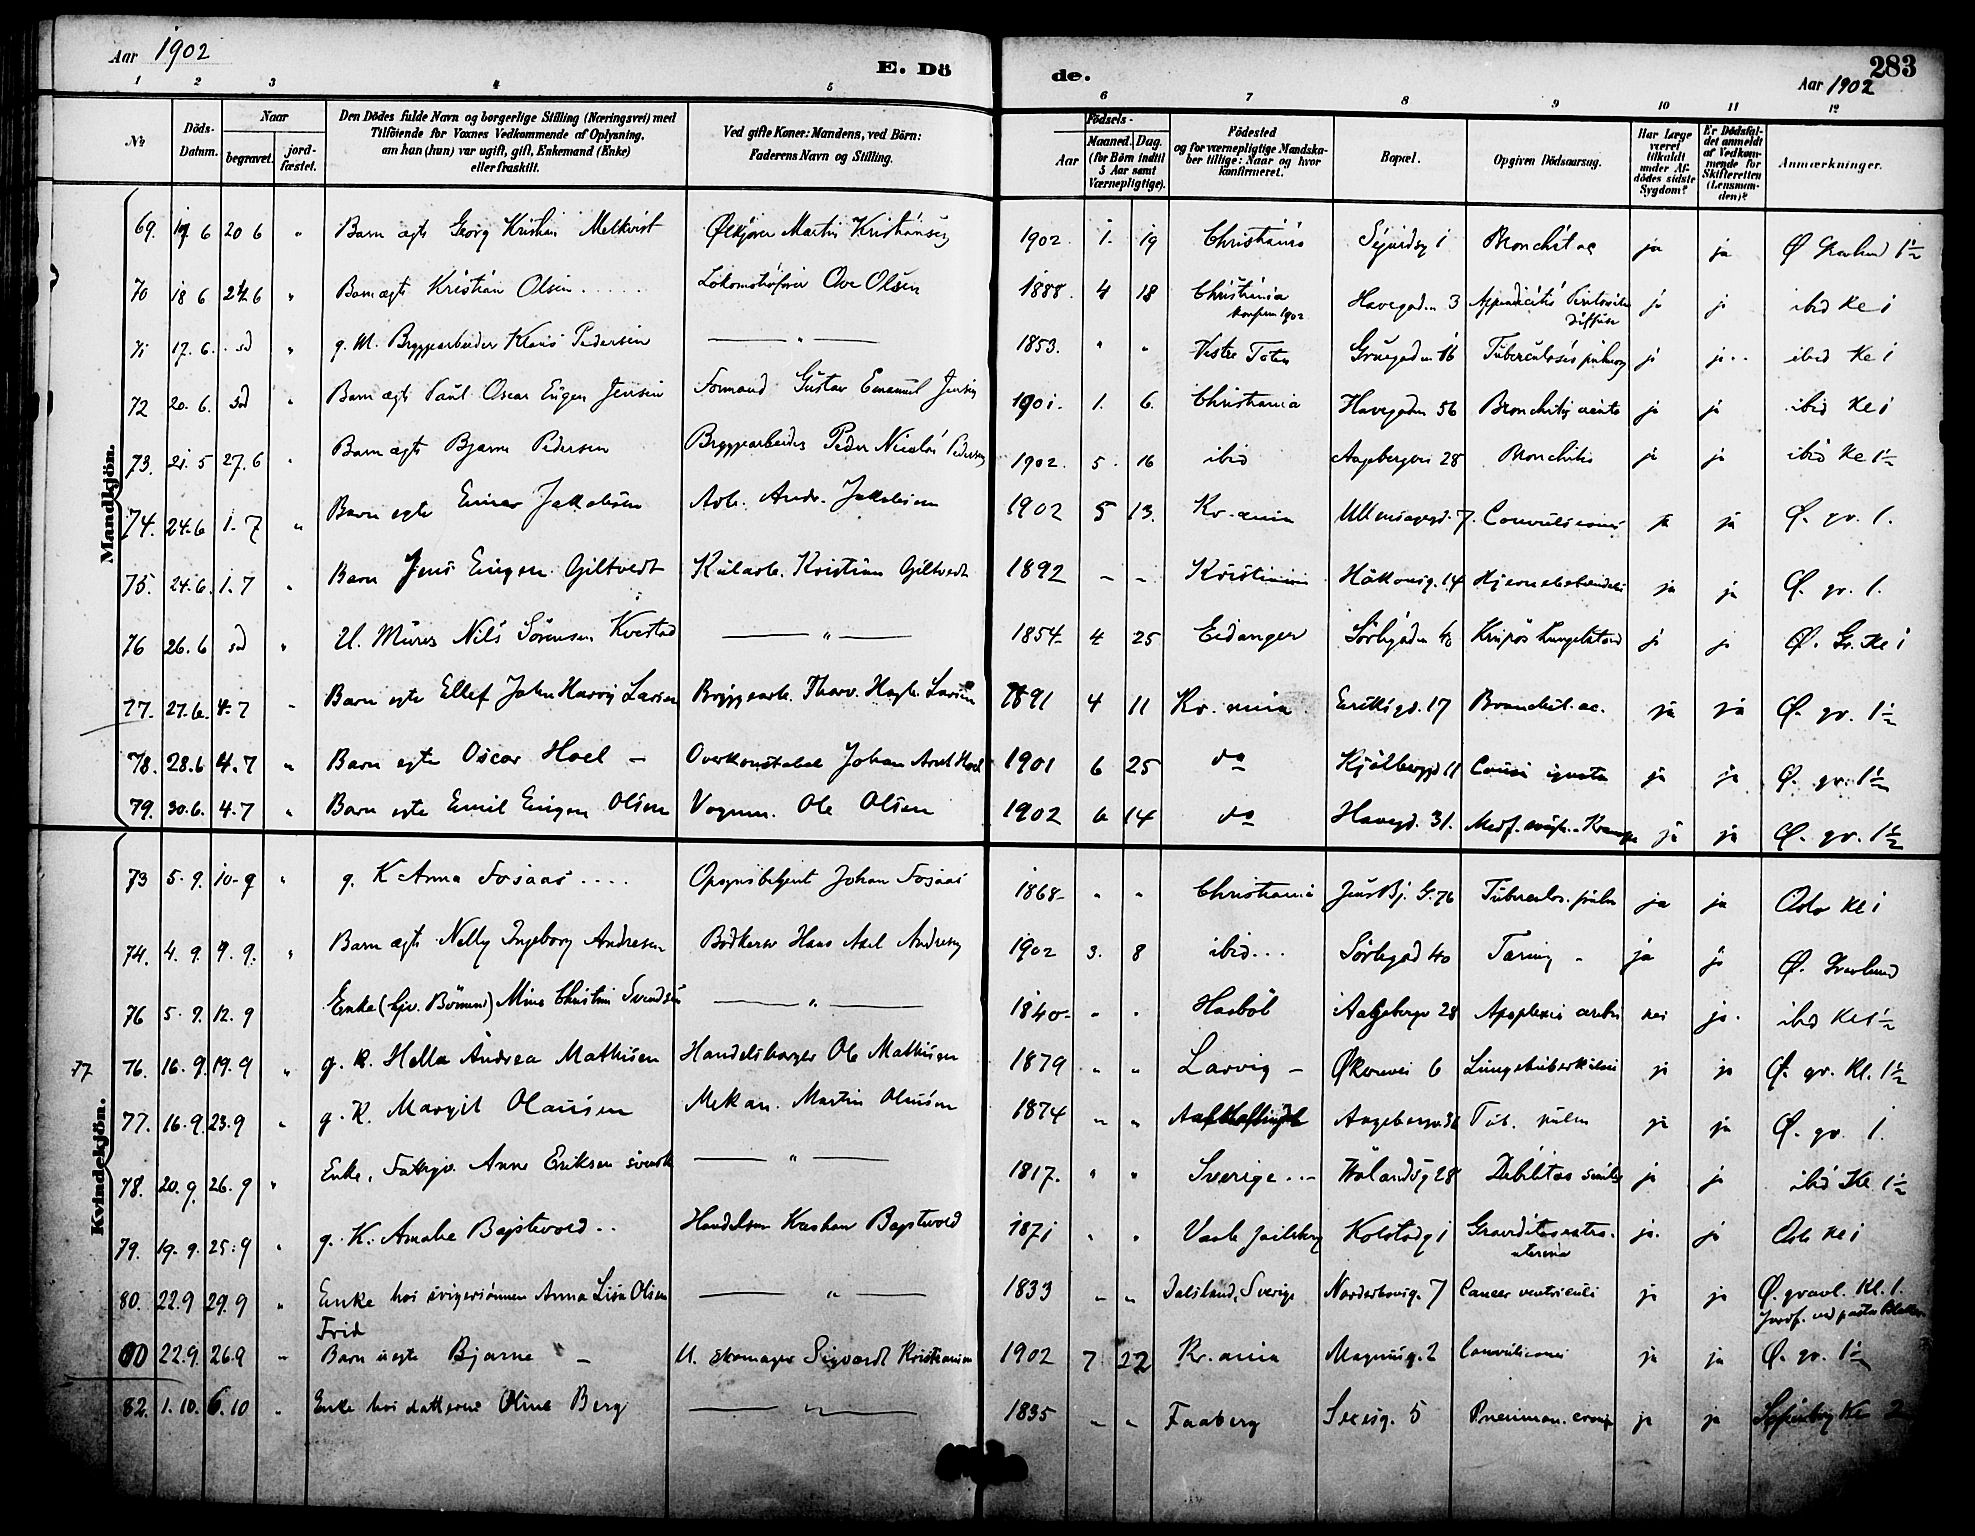 Aar 1902
E. Dö
de.
283
Aar 1902
1 2 3 4 5 6 7 8 9 10 11 12
No
Döds-
Datum.
Naar
begravet.
jord-
fæstet.
Den Dödes fulde Navn og borgerlige Stilling (Næringsvei) med
Tilföiende for Voxnes Vedkommende af Oplysning,
om han (hun) var ugift, gift, Enkemand (Enke)
eller fraskilt.
Ved gifte Koner: Mandens, ved Börn:
Faderens Navn og Stilling.
Födsels-
Aar
Maaned. Dag.
(for Börn indtil
5 Aar samt
Værnepligtige).
Födested
og for værnepligtige Mandska-
ber tillige: Naar og hvor
konfirmeret.
Bopæl.
Opgiven Dödsaarsag.
Har Læge
været
tilkaldt
under Af-
dödes sidste
Sygdom?
Er Dödsfal-
det anmeldt
af Vedkom-
mende for
Skifteretten
(Lensman-
den)?
Anmærkninger.
Mandkjön.
69. 17 6 20 6 " Barn ægte Georg Kristian Melkvist Ölkjører Martin Kristiansen 1902. 1. 19 Christiania Sigurdsg 1 Bronchit ac ja ja Ø Gravlund 1½
70 18 6 24 6 " Barn ægte Kristian Olsen Lokomotivfører Ove Olsen 1888. 4 18 Christiania konfirm 1902 Havegaden 3 Appendicitis Peritonitis diffusa ja ja ibid Kl 1
71 17. 6. sd " g. M. Bryggearbeider Klaus Pedersen — " — 1853. " " Vestre Toten Grüegaden 16 Tuberculosis pulm ja ja ibid Kl 1
72 20. 6. sd " Barn ægte Paul Oscar Eugen Jensen Formand Gustav Emanuel Jensen 1901. 1. 6. Christiania Havegaden 56 Bronchitis acuta ja ja ibid Kl 1
73. 21. 5 27. 6 " Barn ægte Bjarne Pedersen Bryggearbeider Peder Nicolai Pedersen 1902. 5. 16 ibid Aagebergvei 28 Bronchitis ja ja ibid Kl 1½
74. 24. 6 1. 7 " Barn egte Einar Jakobsen Arb. Andr. Jakobsen 1902 5 13. Kr. ania Ullensagergd. 7. Convulsiones ja ja Ø. gr. 1.
75. 24. 6. 1. 7 " Barn Jens Eugen Giltvedt Kularb. Kristian Giltvedt 1892 – – Kristiania Håkonsg. 14 Hjernebetændelse ja ja Ø. gr. 1.
76 26. 6 sd " U. Murer Nils Sörensen Kvestad — " — 1854 4 25 Eidanger Sörligaden 40 Krupös Lungebetænd ja ja Ø. Gr. Kl 1
77. 27. 6. 4. 7 " Barn egte Ellef John Harry Larsen Bryggearb. Thorv. Hagb. Larsen 1891 4 11 Kr. ania Eriksgd. 17 Bronchit. ac. ja ja Ø. gr. 1½
78. 28. 6 4. 7 " Barn egte Oscar Hoel – Overkonstabel Johan Axel Hoel 1901 6 25 do Kjölberggd 11 Causa ignota ja ja Ø. gr. 1½
79. 30. 6. 4. 7 " Barn egte Emil Eugen Olsen Vognm. Ole Olsen 1902 6 14 do Havegd. 31. Medf. Krampe ja ja Ø. gr. 1½
Kvindekjön.
73 5. 9. 10. 9 " g. K Anna Fosaas Opsynsbetjent Johan Fosaas 1868 " " Christiania Jens Bj. G. 76 Tuberculos. pulm ja ja Oslo Kl 1
74. 4. 9. 9. 9. " Barn ægte Nelly Ingeborg Andresen Bödkersv Hans Axel Andresen 1902 3. 8 ibid Sörligad 40 Tæring ja ja Ø. Gravlund
76 5. 9. 12. 9 Enke Mina Christine Svendsen — " — 1840 " " Aageberg 28 Apoplexia cerebri nei ja. ibid Kl 1½
77 76. 16. 9. 19. 9 " g. K. Hella Andrea Mathisen Handelsborger Ole Mathisen 1879 " " Larvig – Økernvei 6 Lungetuberkulose ja ja Ø. gr. Kl. 1½
77. 16. 9. 23. 9 " g. K. Margit Olausen Mekan. Martin Olausen 1874 " " Aagebergv Tub. pulm ja ja Ø. gr 1.
78. 20. 9. 26. 9 " Enke, Fattigv. Anne Eriksen svensk — " — 1817. " " Sverige Hölandsg 28 Debilitas senilis ja ja ibid Kl 1½
79. 19. 9. 25. 9 " g. K. Amalie Bagstevold Handelsm Kristian Bagstevold 1871 " " Vaale Jarlsberg Kolstadg 1 Graviditas extrauterina ja. ja Oslo Kl 1
80. 22. 9 29. 9 " Enke hos svigersönnen Anna Lisa Olsen — " — 1833 " " Dalsland, Sverige Norderhovsg. 7 Cancer ventriculi ja ja Ø. gravl. Kl. 1.
Jordf. ved pastor
Frid
80 22. 9. 26. 9 " Barn uegte Bjarne – U. skomager Sigvardt Kristiansen 1902 7 22 Kr. ania Magnusg. 2 Convulsiones ja ja Ø. gr. 1½
82. 1. 10. 6. 10 " Enke hos datteren Oline Berg — " — 1835 " " Faaberg Sexesg. 5 Pneumon. croup ja ja Kl 2